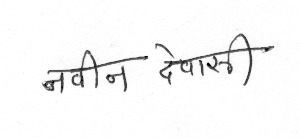 नवीन देवासी